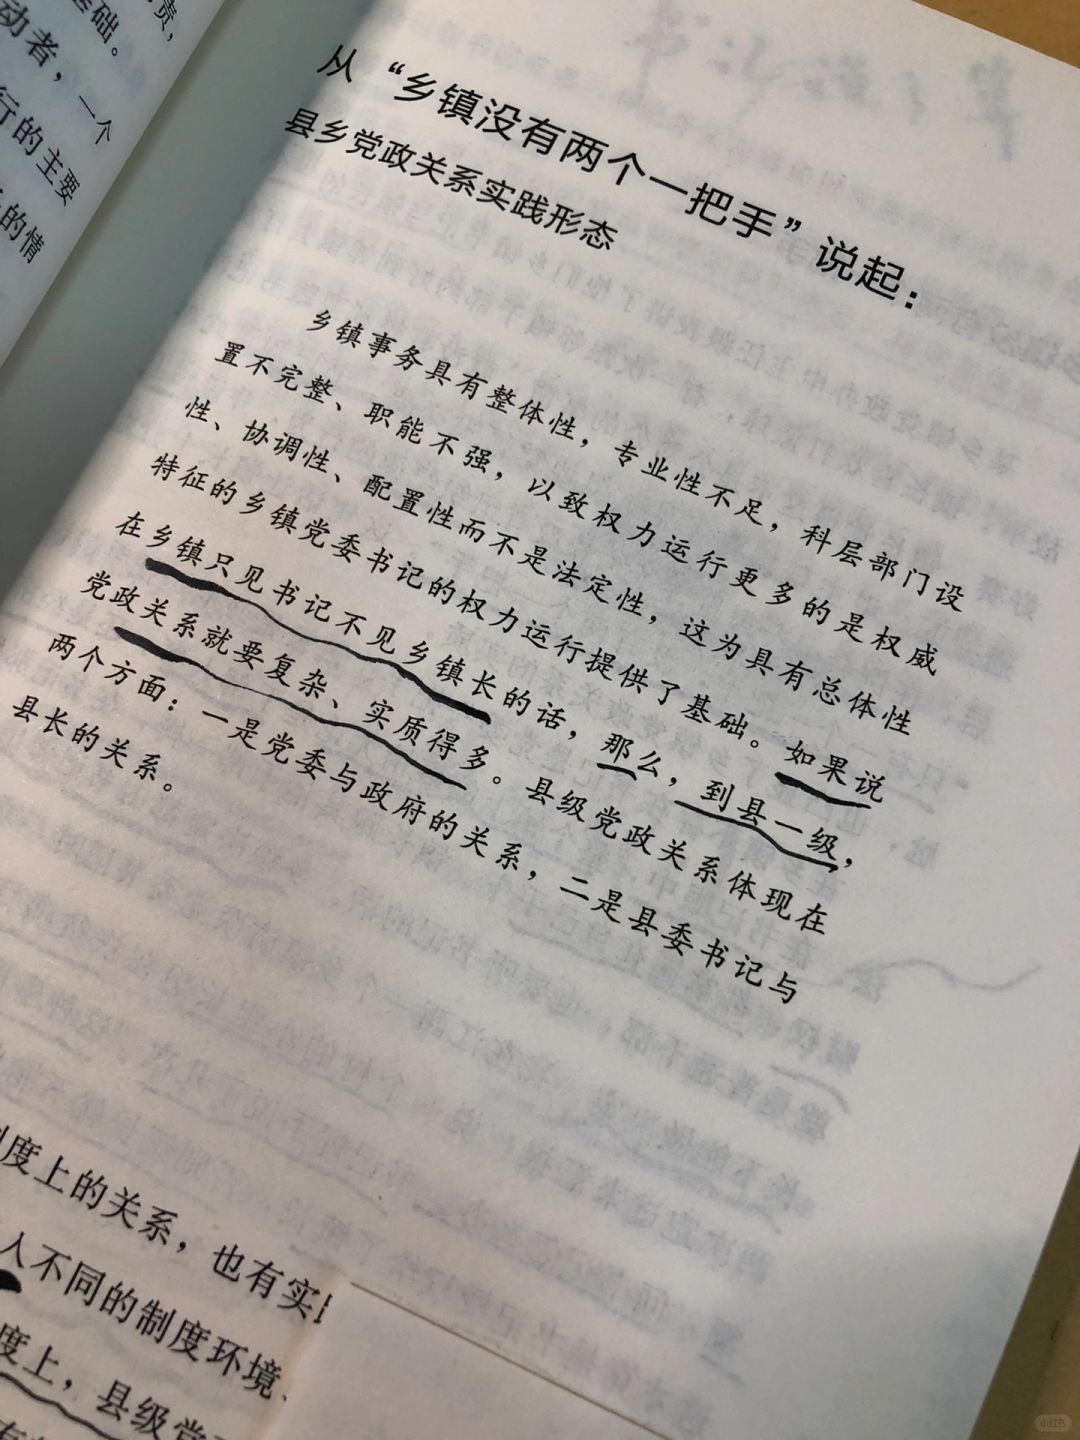 责，
基础。
动者，一个
行的主要
的情
从“乡镇没有两个一把手”说起：
县乡党政关系实践形态
乡镇事务具有整体性，专业性不足，科层部门设
置不完整、职能不强，以致权力运行更多的是权威
性、协调性、配置性而不是法定性，这为具有总体性
特征的乡镇党委书记的权力运行提供了基础。如果说
在乡镇只见书记不见乡镇长的话，那么，到县一级，
党政关系就要复杂、实质得多。县级党政关系体现在
两个方面：一是党委与政府的关系，二是县委书记与
县长的关系。
制度上的关系，也有实
人不同的制度环境、
度上，县级党
小红书